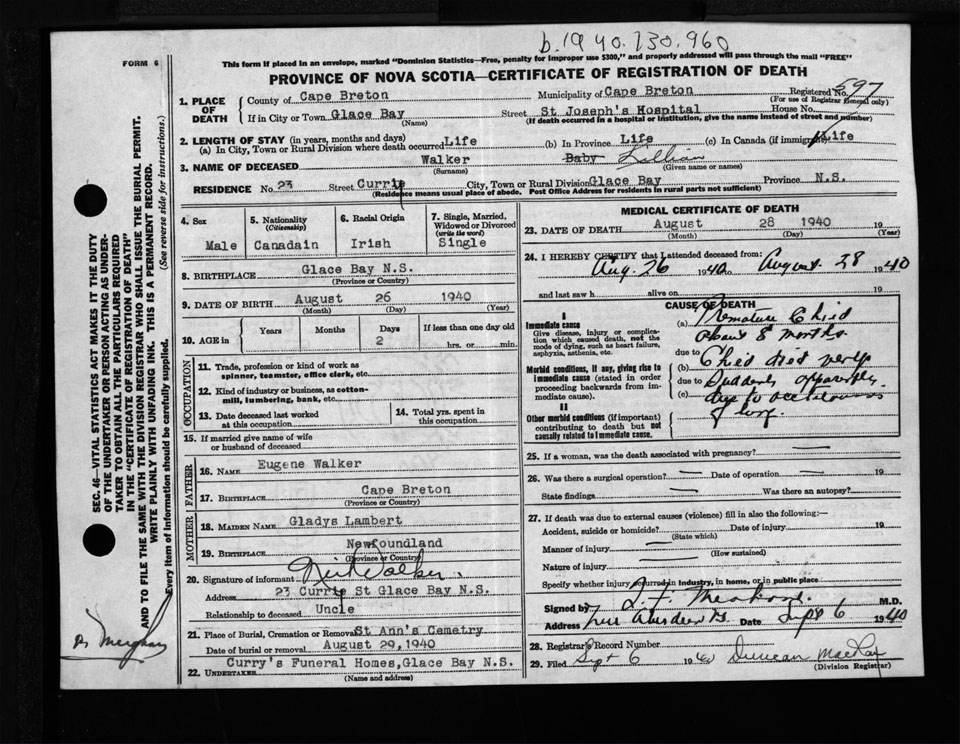 b.1940.730.960
FORM 6
This form if placed in an envelope, marked "Dominion Statistics—Free, penalty for improper use $300," and properly addressed will pass through the mail "FREE"
PROVINCE OF NOVA SCOTIA—CERTIFICATE OF REGISTRATION OF DEATH
1. PLACE OF DEATH
County of Cape Breton Municipality of Cape Breton Registered No. 597
(For use of Registrar General only)
If in City or Town Glace Bay Street St Joseph's Hospital House No.
(Name) (If death occurred in a hospital or institution, give the name instead of street and number)
2. LENGTH OF STAY (in years, months and days)
(a) In City, Town or Rural Division where death occurred Life (b) In Province Life (c) In Canada (if immigrant) Life
3. NAME OF DECEASED Walker Baby Lillian
(Surname) (Given name or names)
RESIDENCE No. 23 Street Currie City, Town or Rural Division Glace Bay Province N.S.
(Residence means usual place of abode. Post Office Address for residents in rural parts not sufficient)
4. Sex
Male
5. Nationality
(Citizenship)
Canadain
6. Racial Origin
Irish
7. Single, Married, Widowed or Divorced
(write the word)
Single
8. BIRTHPLACE Glace Bay N.S.
(Province or Country)
9. DATE OF BIRTH August 26 1940
(Month) (Day) (Year)
10. AGE in Years Months Days If less than one day old
2 hrs. or min.
OCCUPATION
11. Trade, profession or kind of work as
spinner, teamster, office clerk, etc.
12. Kind of industry or business, as cotton-
mill, lumbering, bank, etc.
13. Date deceased last worked
at this occupation
14. Total yrs. spent in
this occupation
15. If married give name of wife
or husband of deceased
FATHER
16. NAME Eugene Walker
17. BIRTHPLACE Cape Breton
(Province or Country)
MOTHER
18. MAIDEN NAME Gladys Lambert
19. BIRTHPLACE Newfoundland
(Province or Country)
20. Signature of informant Walker
Address 23 Currie St Glace Bay N.S.
Relationship to deceased Uncle
21. Place of Burial, Cremation or Removal St Ann's Cemetry
Date of burial or removal August 29, 1940
22. UNDERTAKER Curry's Funeral Homes, Glace Bay N.S.
(Name and address)
MEDICAL CERTIFICATE OF DEATH
23. DATE OF DEATH August 28 1940 19
(Month) (Day) (Year)
24. I HEREBY CERTIFY that I attended deceased from:
Aug. 26 1940 to August 28 1940
and last saw h alive on 19
CAUSE OF DEATH
I
Immediate cause
Give disease, injury or complica-
tion which caused death, not the
mode of dying, such as heart failure,
asphyxia, asthenia, etc.
(a) Premature Child
about 8 months.
due to
Morbid conditions, if any, giving rise to
immediate cause (stated in order
proceeding backwards from im-
mediate cause).
(b) Child died very
due to Suddenly apparently
(c) due to
of lung.
II
Other morbid conditions (if important)
contributing to death but not
causally related to immediate cause.
25. If a woman, was the death associated with pregnancy?
26. Was there a surgical operation? Date of operation 19
State findings Was there an autopsy?
27. If death was due to external causes (violence) fill in also the following:—
Accident, suicide or homicide? Date of injury 19
(State which)
Manner of injury
(How sustained)
Nature of injury
Specify whether injury occurred in industry, in home, or in public place
Signed by M.D.
Address New Aberdeen Date Sept 6 1940
28. Registrar's Record Number
29. Filed Sept 6 1940 Duncan MacKay
(Division Registrar)
SEC. 46—VITAL STATISTICS ACT MAKES IT THE DUTY
OF THE UNDERTAKER OR PERSON ACTING AS UNDER-
TAKER TO OBTAIN ALL THE PARTICULARS REQUIRED
IN THE "CERTIFICATE OF REGISTRATION OF DEATH"
AND TO FILE THE SAME WITH THE DIVISION REGISTRAR WHO SHALL ISSUE THE BURIAL PERMIT.
WRITE PLAINLY WITH UNFADING INK. THIS IS A PERMANENT RECORD.
Every item of information should be carefully supplied. (See reverse side for instructions.)
Dr